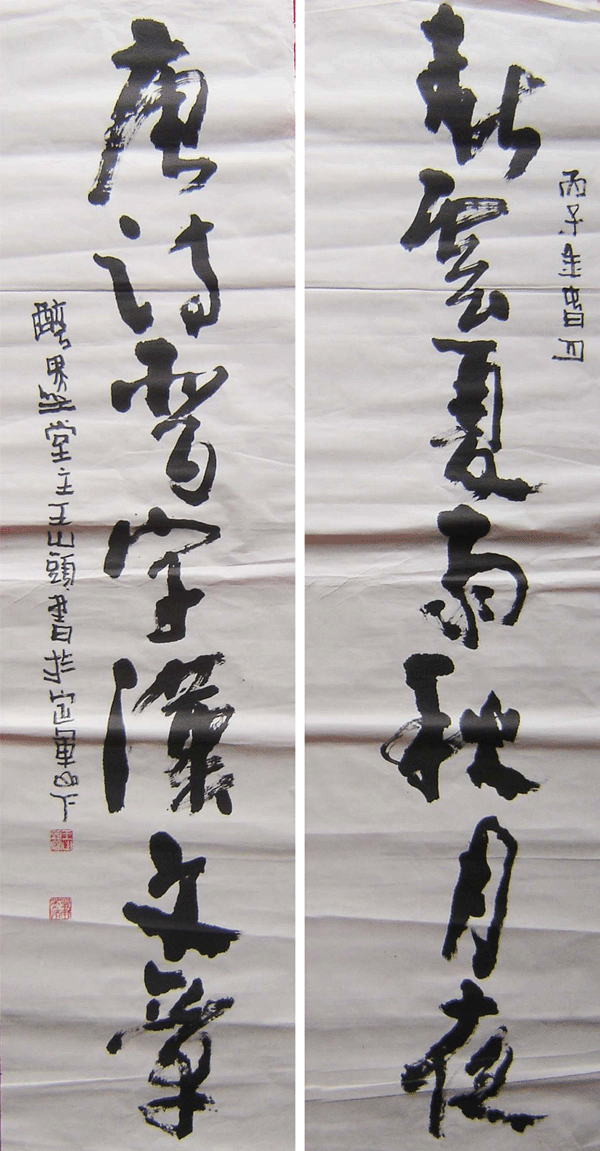 丙子
春雲夏雨秋月夜
唐詩晉字漢文章
醉墨堂主王山頭書於定軍山下